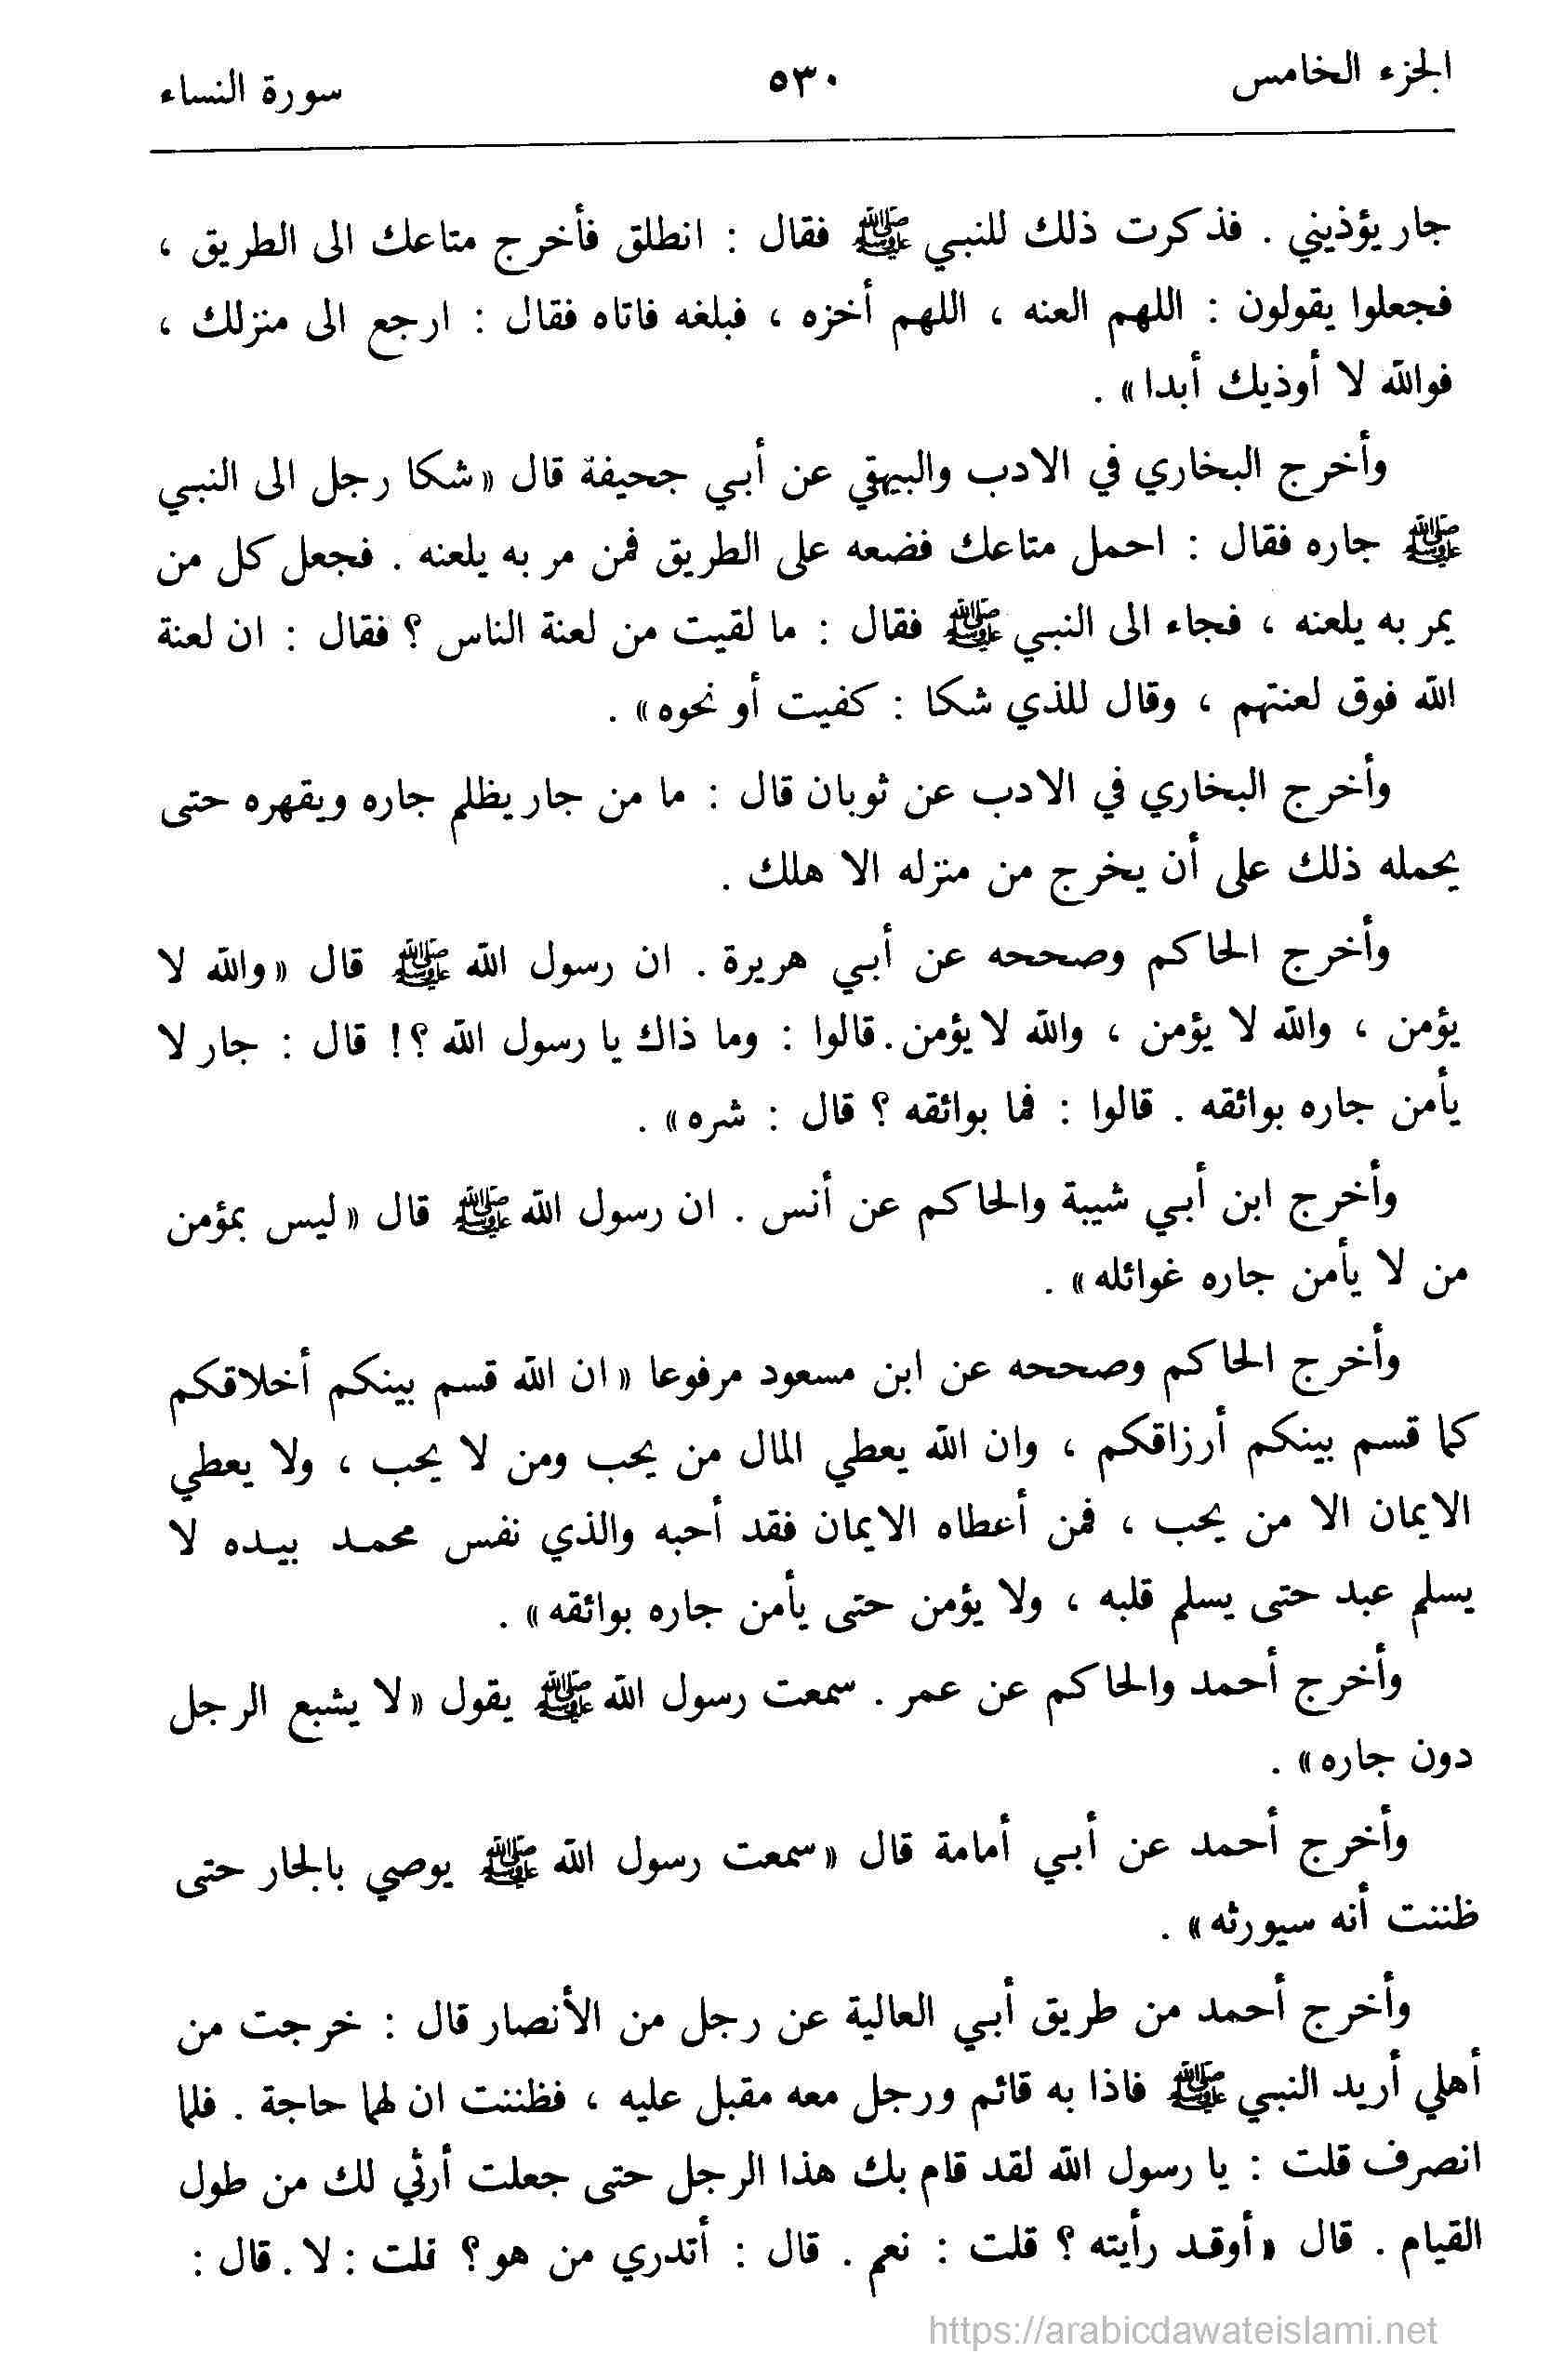 الجزء الخامس
٥٣٠
سورة النساء
جار يؤذيني . فذكرت ذلك للنبي ﷺ فقال : انطلق فأخرج متاعك الى الطريق ،
فجعلوا يقولون : اللهم العنه ، اللهم أخزه ، فبلغه فاتاه فقال : ارجع الى منزلك ،
فوالله لا أوذيك أبدا» .
وأخرج البخاري في الادب والبيهقي عن أبي جحيفة قال «شكا رجل الى النبي
ﷺ جاره فقال : احمل متاعك فضعه على الطريق فمن مر به يلعنه . فجعل كل من
يمر به يلعنه ، فجاء الى النبي ﷺ فقال : ما لقيت من لعنة الناس ؟ فقال : ان لعنة
الله فوق لعنتهم ، وقال للذي شكا : كفيت أو نحوه» .
وأخرج البخاري في الادب عن ثوبان قال : ما من جار يظلم جاره ويقهره حتى
يحمله ذلك على أن يخرج من منزله الا هلك .
وأخرج الحاكم وصححه عن أبي هريرة . ان رسول الله ﷺ قال «والله لا
يؤمن ، والله لا يؤمن ، والله لا يؤمن . قالوا : وما ذاك يا رسول الله ؟! قال : جار لا
يأمن جاره بوائقه . قالوا : فما بوائقه ؟ قال : شره» .
وأخرج ابن أبي شيبة والحاكم عن أنس . ان رسول الله ﷺ قال «ليس بمؤمن
من لا يأمن جاره غوائله» .
وأخرج الحاكم وصححه عن ابن مسعود مرفوعا «ان الله قسم بينكم أخلاقكم
كما قسم بينكم أرزاقكم ، وان الله يعطي المال من يحب ومن لا يحب ، ولا يعطي
الايمان الا من يحب ، فمن أعطاه الايمان فقد أحبه والذي نفس محمد بيده لا
يسلم عبد حتى يسلم قلبه ، ولا يؤمن حتى يأمن جاره بوائقه» .
وأخرج أحمد والحاكم عن عمر . سمعت رسول الله ﷺ يقول «لا يشبع الرجل
دون جاره» .
وأخرج أحمد عن أبي أمامة قال «سمعت رسول الله ﷺ يوصي بالجار حتى
ظننت أنه سيورثه» .
وأخرج أحمد من طريق أبي العالية عن رجل من الأنصار قال : خرجت من
أهلي أريد النبي ﷺ فاذا به قائم ورجل معه مقبل عليه ، فظننت ان لهما حاجة . فلما
انصرف قلت : يا رسول الله لقد قام بك هذا الرجل حتى جعلت أرثي لك من طول
القيام . قال «أوقد رأيته ؟ قلت : نعم . قال : أتدري من هو ؟ قلت : لا . قال :
https://arabicdawateislami.net